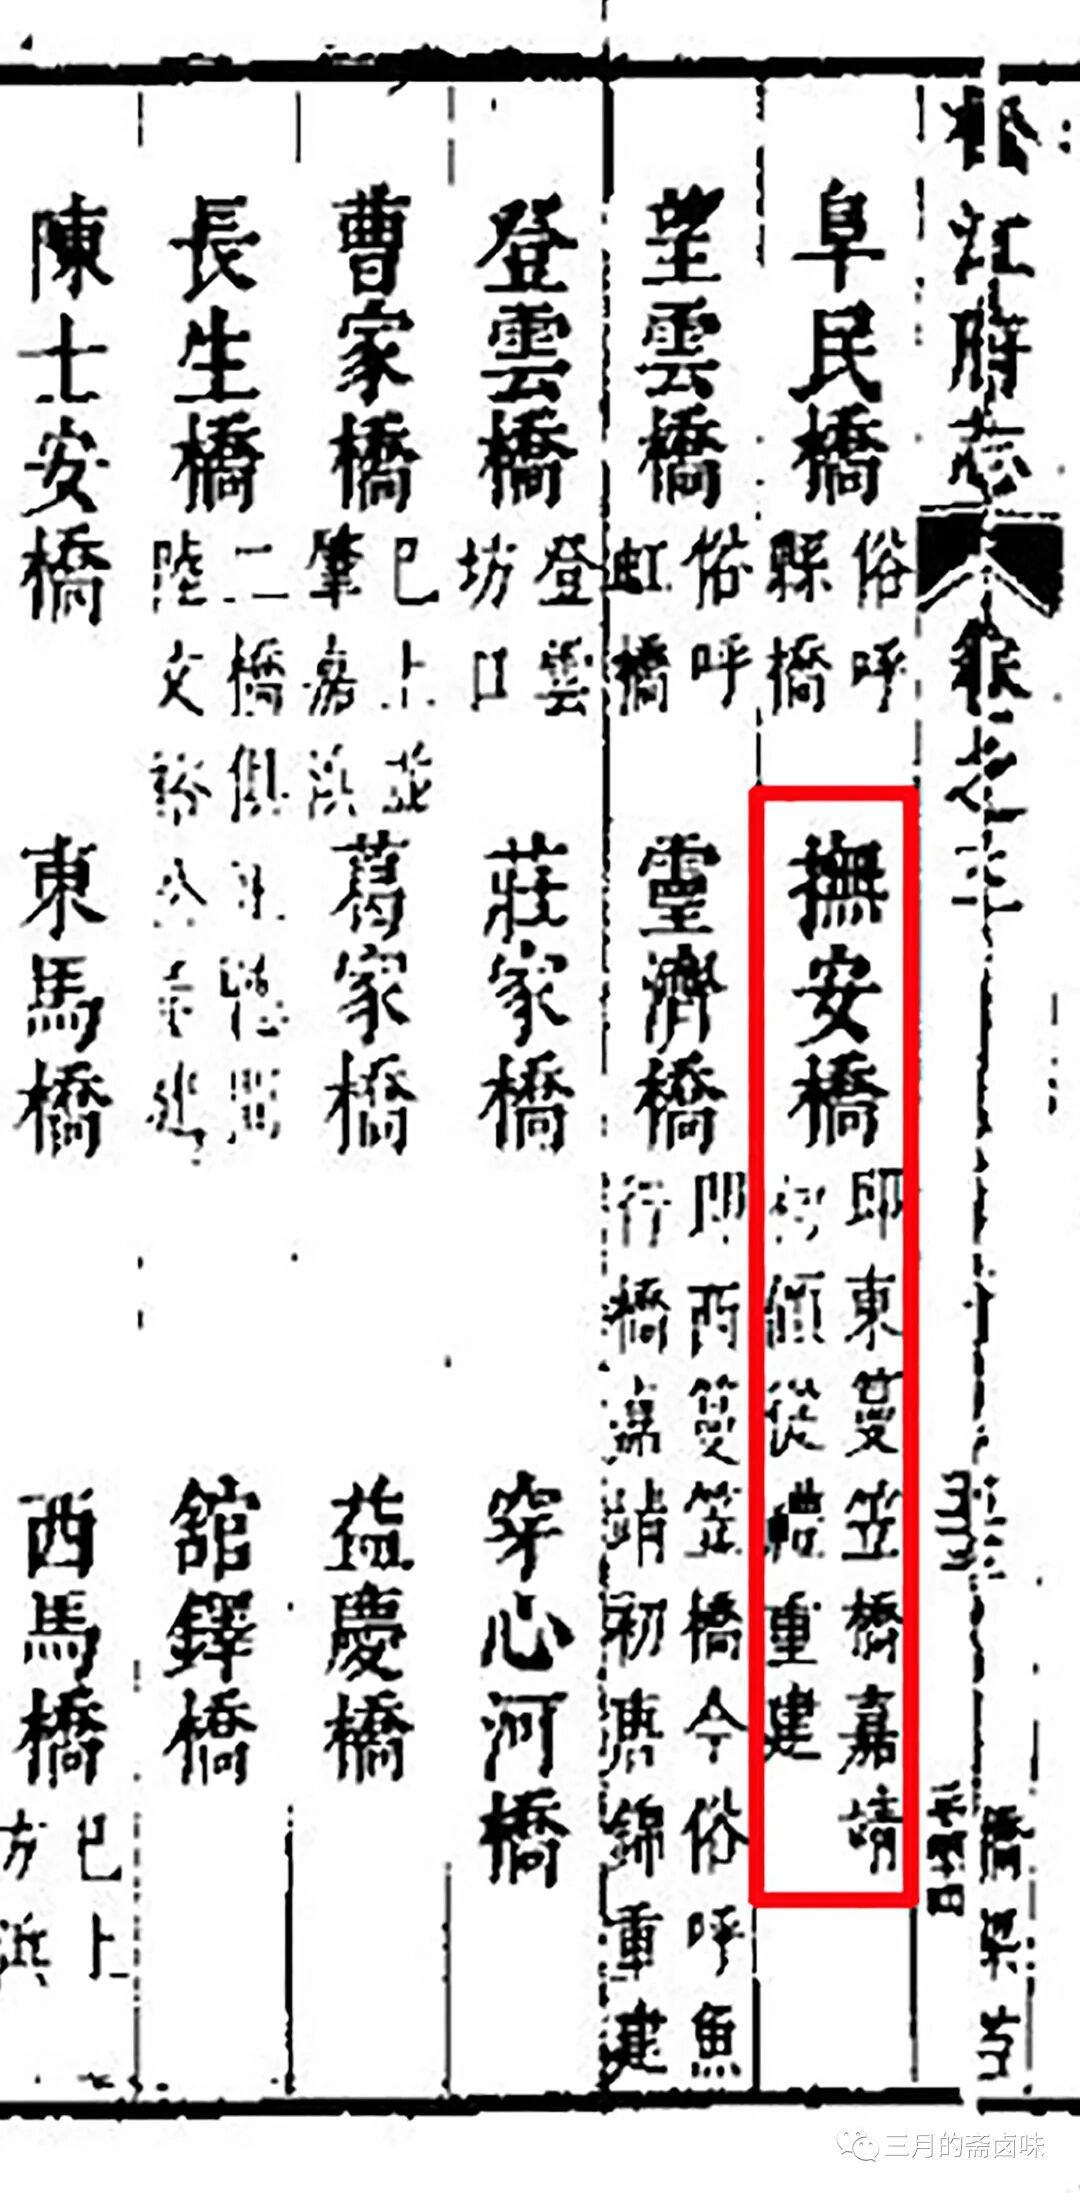 松江府志 卷之三 橋梁
阜民橋 俗呼縣橋 撫安橋 即東䈏笠橋嘉靖初顧從禮重建
望雲橋 俗呼虹橋 靈濟橋 即西䈏笠橋今俗呼魚行橋嘉靖初唐錦重建
登雲橋 登雲坊口 莊家橋 穿心河橋
曹家橋 已上並肇嘉浜 葛家橋 益慶橋
長生橋 二橋俱 陸文裕公 建 舘鐸橋
陳士安橋 東馬橋 西馬橋 已上方浜
三月的斋卤味